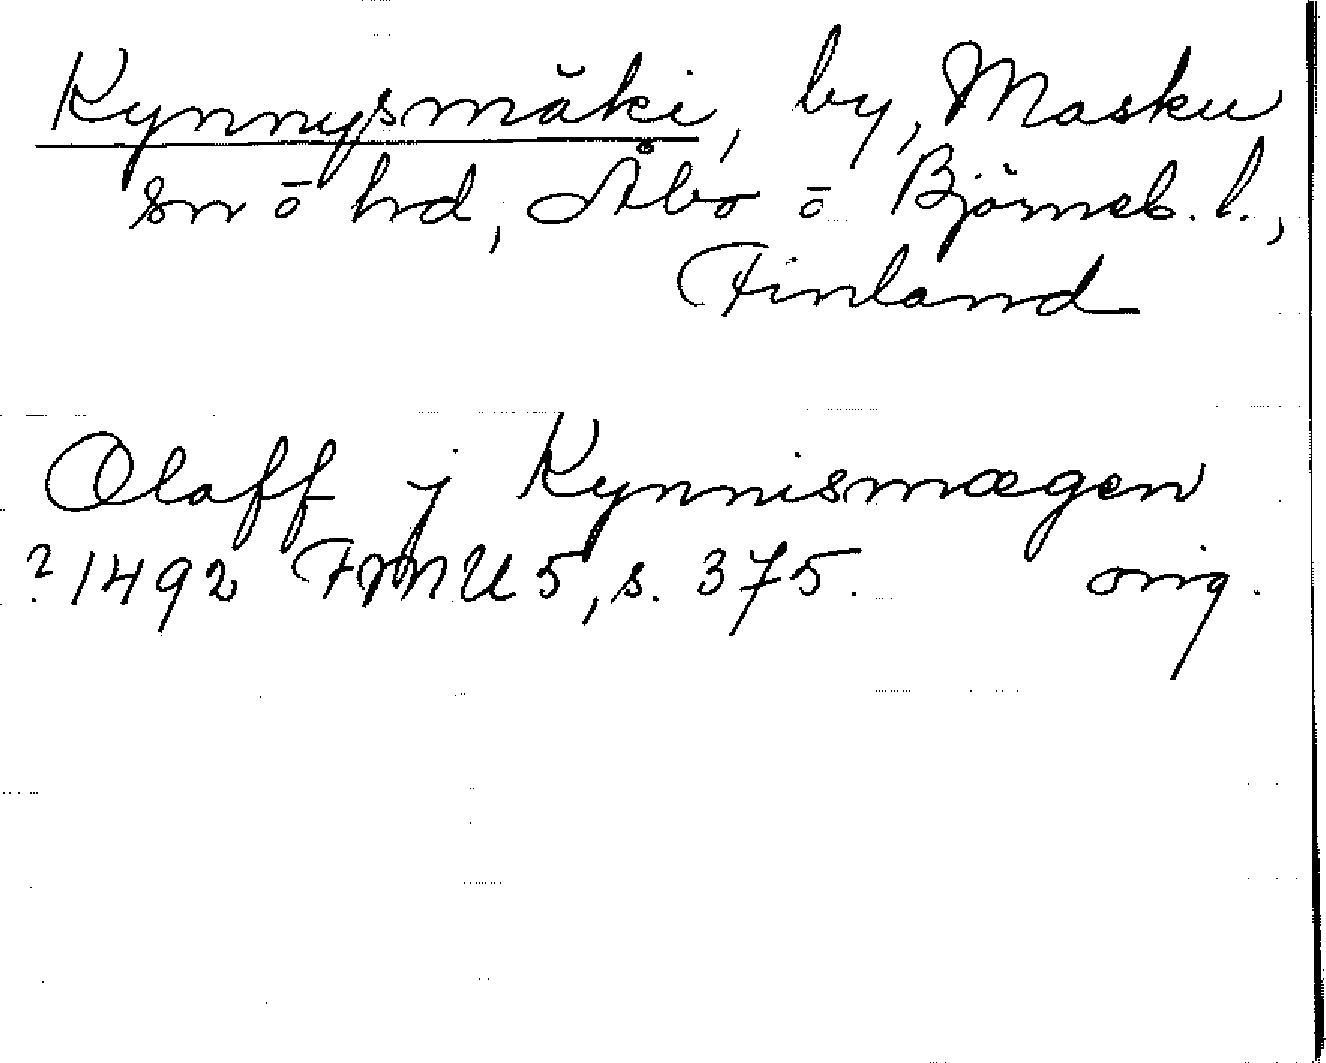 Kynnysmäki, by, Masku
sn ō hd, Åbo ō Björneb. l.,
Finland
Olaff j Kynnismægen
? 1492 FMU 5, s. 375. orig.